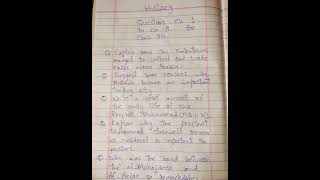 History
Questions Ch 1
to ch 3 for
Class 7th.
Q Explain how the Nabataeans
managed to control the trade
routes across Arabia.
Q Suggest some reasons why
Makkah became an important
trading city.
Q Write a brief account of
the early life of the
Prophet Muhammad (P.B.U.H).
Q Explain why the Prophet
Muhammad farewell sermon
is considered so important to
muslims.
Q Why was the bond between
the al-Muhajireen and
Al-Ansar so remarkable